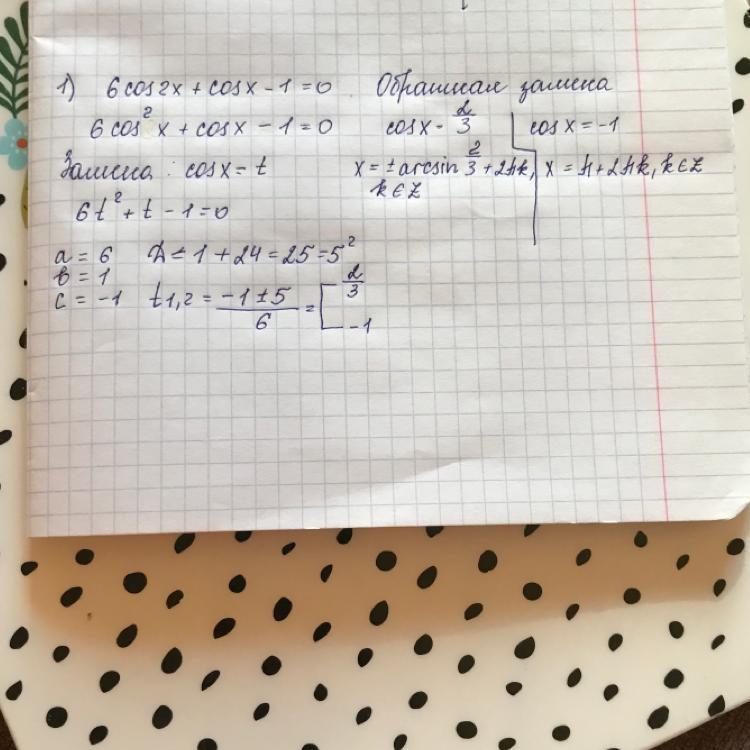 1) 6cos2x + cosx - 1 = 0
6cos²x + cosx - 1 = 0
Замена: cosx = t
6t² + t - 1 = 0
a = 6
b = 1
c = -1
D = 1 + 24 = 25 = 5²
t1,2 = (-1 ± 5)/6 = [ 2/3
-1
Обратная замена
cosx - 2/3
x = ± arcsin 2/3 + 2πk,
k ∈ Z
cosx = -1
x = π + 2πk, k ∈ Z